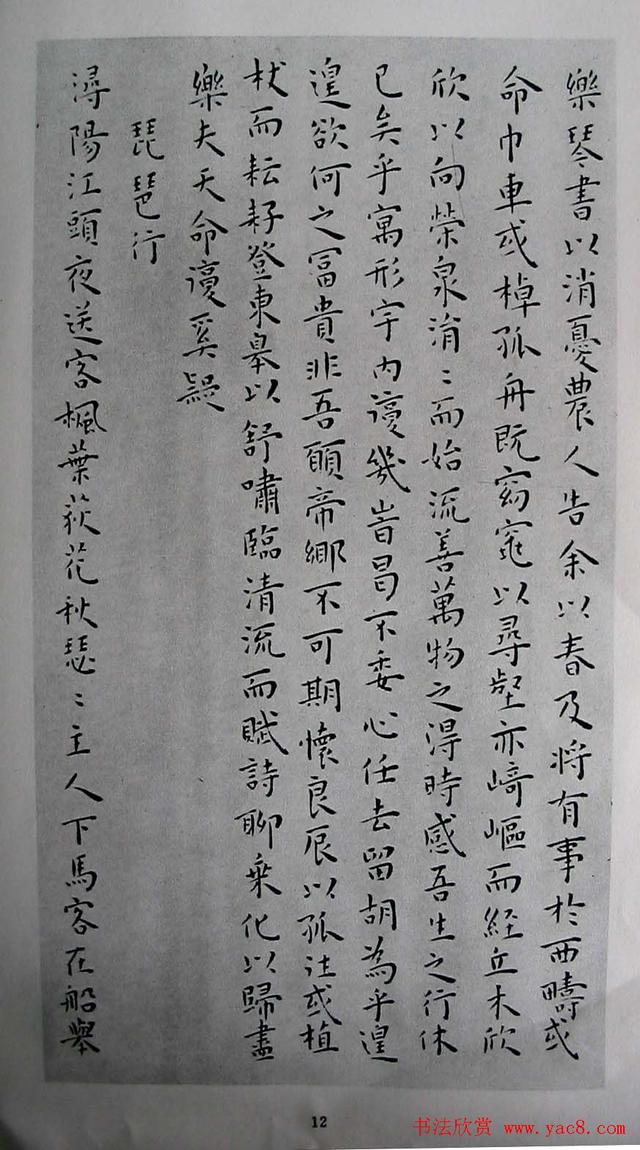 樂琴書以消憂農人告余以春及將有事於西疇或
命巾車或棹孤舟既窈窕以尋壑亦崎嶇而經丘木欣
欣以向榮泉涓〻而始流善萬物之得時感吾生之行休
已矣乎寓形宇內復幾旹曷不委心任去留胡為乎遑
遑欲何之富貴非吾願帝鄉不可期懷良辰以孤往或植
杖而耘耔登東皋以舒嘯臨清流而賦詩聊乘化以歸盡
樂夫天命復奚疑
琵琶行
潯陽江頭夜送客楓葉荻花秋瑟〻主人下馬客在船舉
12
书法欣赏 www.yac8.com